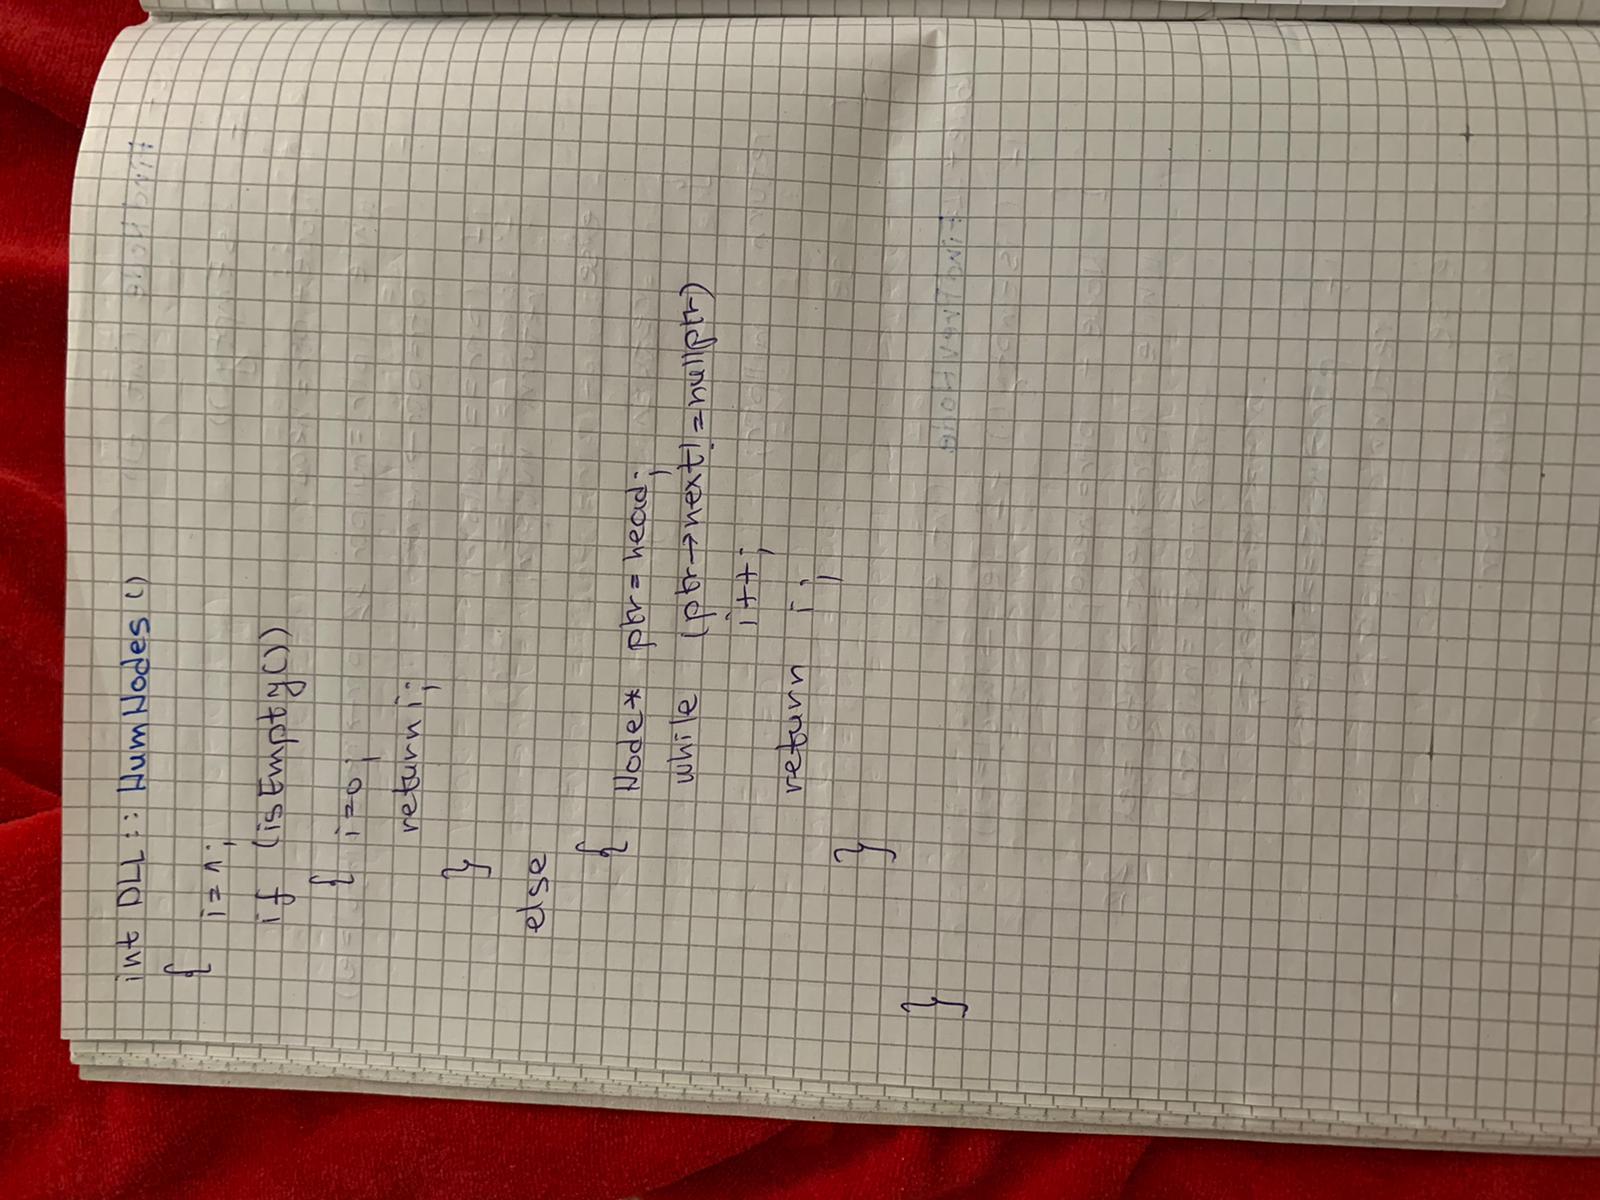 int DLL :: NumNodes ()
{
i = n;
if (isEmpty())
{ i=0;
return i;
}
else
{
Node* ptr = head;
while (ptr→next != nullptr)
i++;
return i;
}
}